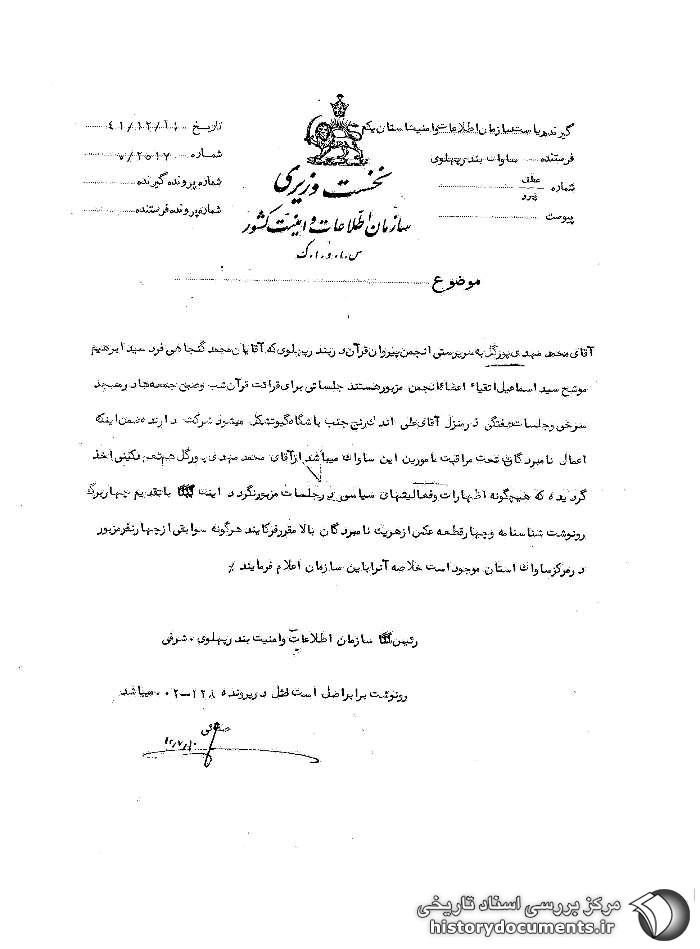 گیرنده ریاست سازمان اطلاعات وامنیت استان یکم
فرستنده ساواک بندرپهلوی
شماره عطف
پیرو
پیوست
تاریخ ۴۱/۱۲/۱۱
شماره ۲۵۱۷/
شماره پرونده گیرنده
شماره پرونده فرستنده
نخست وزیری
سازمان اطلاعات و امنیت کشور
س.ا.و.ا.ک
موضوع
آقای محمد مهدی پورگل به سرپرستی انجمن پیروان قرآن در بندرپهلوی که آقایان محمد گنجاهی فرد سید ابرهیم
موشح سید اسماعیل اتقیاء اعضاء انجمن مزبور هستند جلساتی برای قرائت قرآن شب وصبح جمعه ها در مسجد
سرخی وجلسات هفتگی در منزل آقای علی جنب باشگاه گیو تشکیل میشود شرکت دارند ضمن اینکه
اعمال نامبردگان تحت مراقبت مامورین این ساواک میباشد از آقای محمد مهدی پورگل هم اخذ
گردیده که هیچگونه اظهارات وفعالیتهای سیاسی در جلسات مزبور نگردد اینک با تقدیم چهاربرگ
رونوشت شناسنامه وچهار قطعه عکس از هریک نامبردگان بالا مقرر فرمایند هرگونه سوابقی از چهار نفر مزبور
در مرکز ساواک استان موجود است خلاصه آنرا باین سازمان اعلام فرمایند ٪
رئیس سازمان اطلاعات وامنیت بندرپهلوی . شرفی
رونوشت برابر اصل است اصل در پرونده ۱۲۸-۰۰۲ میباشد
مرکز بررسی اسناد تاریخی
historydocuments.ir